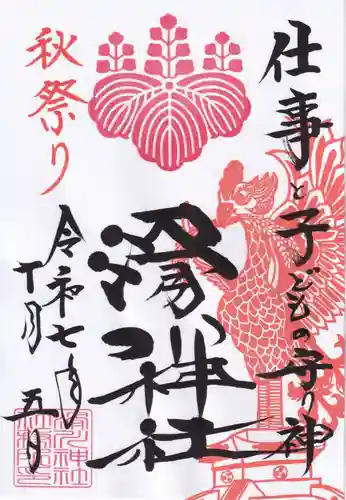 仕事と子どもの守り神
滑川神社
秋祭り
令和七年
十月 五日